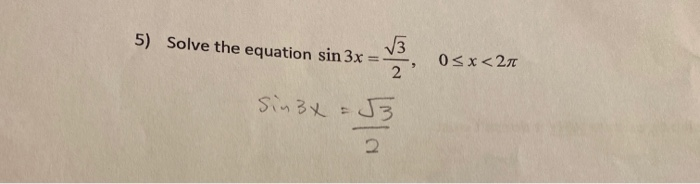 5) Solve the equation sin 3x = √3/2, 0 ≤ x < 2π
sin 3x = √3/2